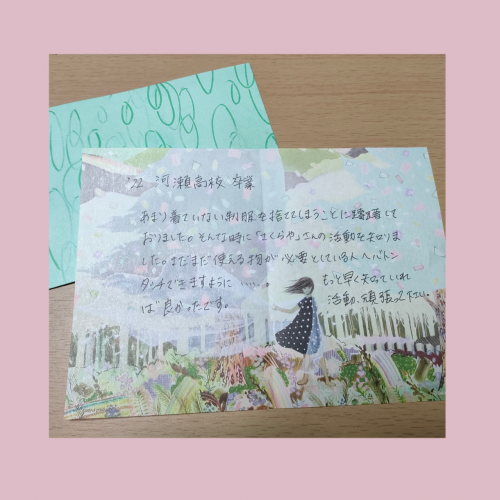 '22 河瀬高校 卒業
あまり着ていない制服を捨ててしまうことに躊躇して
おりました。そんな時に「さくらや」さんの活動を知りま
した。まだまだ使える物が必要としている人へバトン
タッチできますように......。
もっと早く知っていれ
ば良かったです。
活動、頑張って下さい。